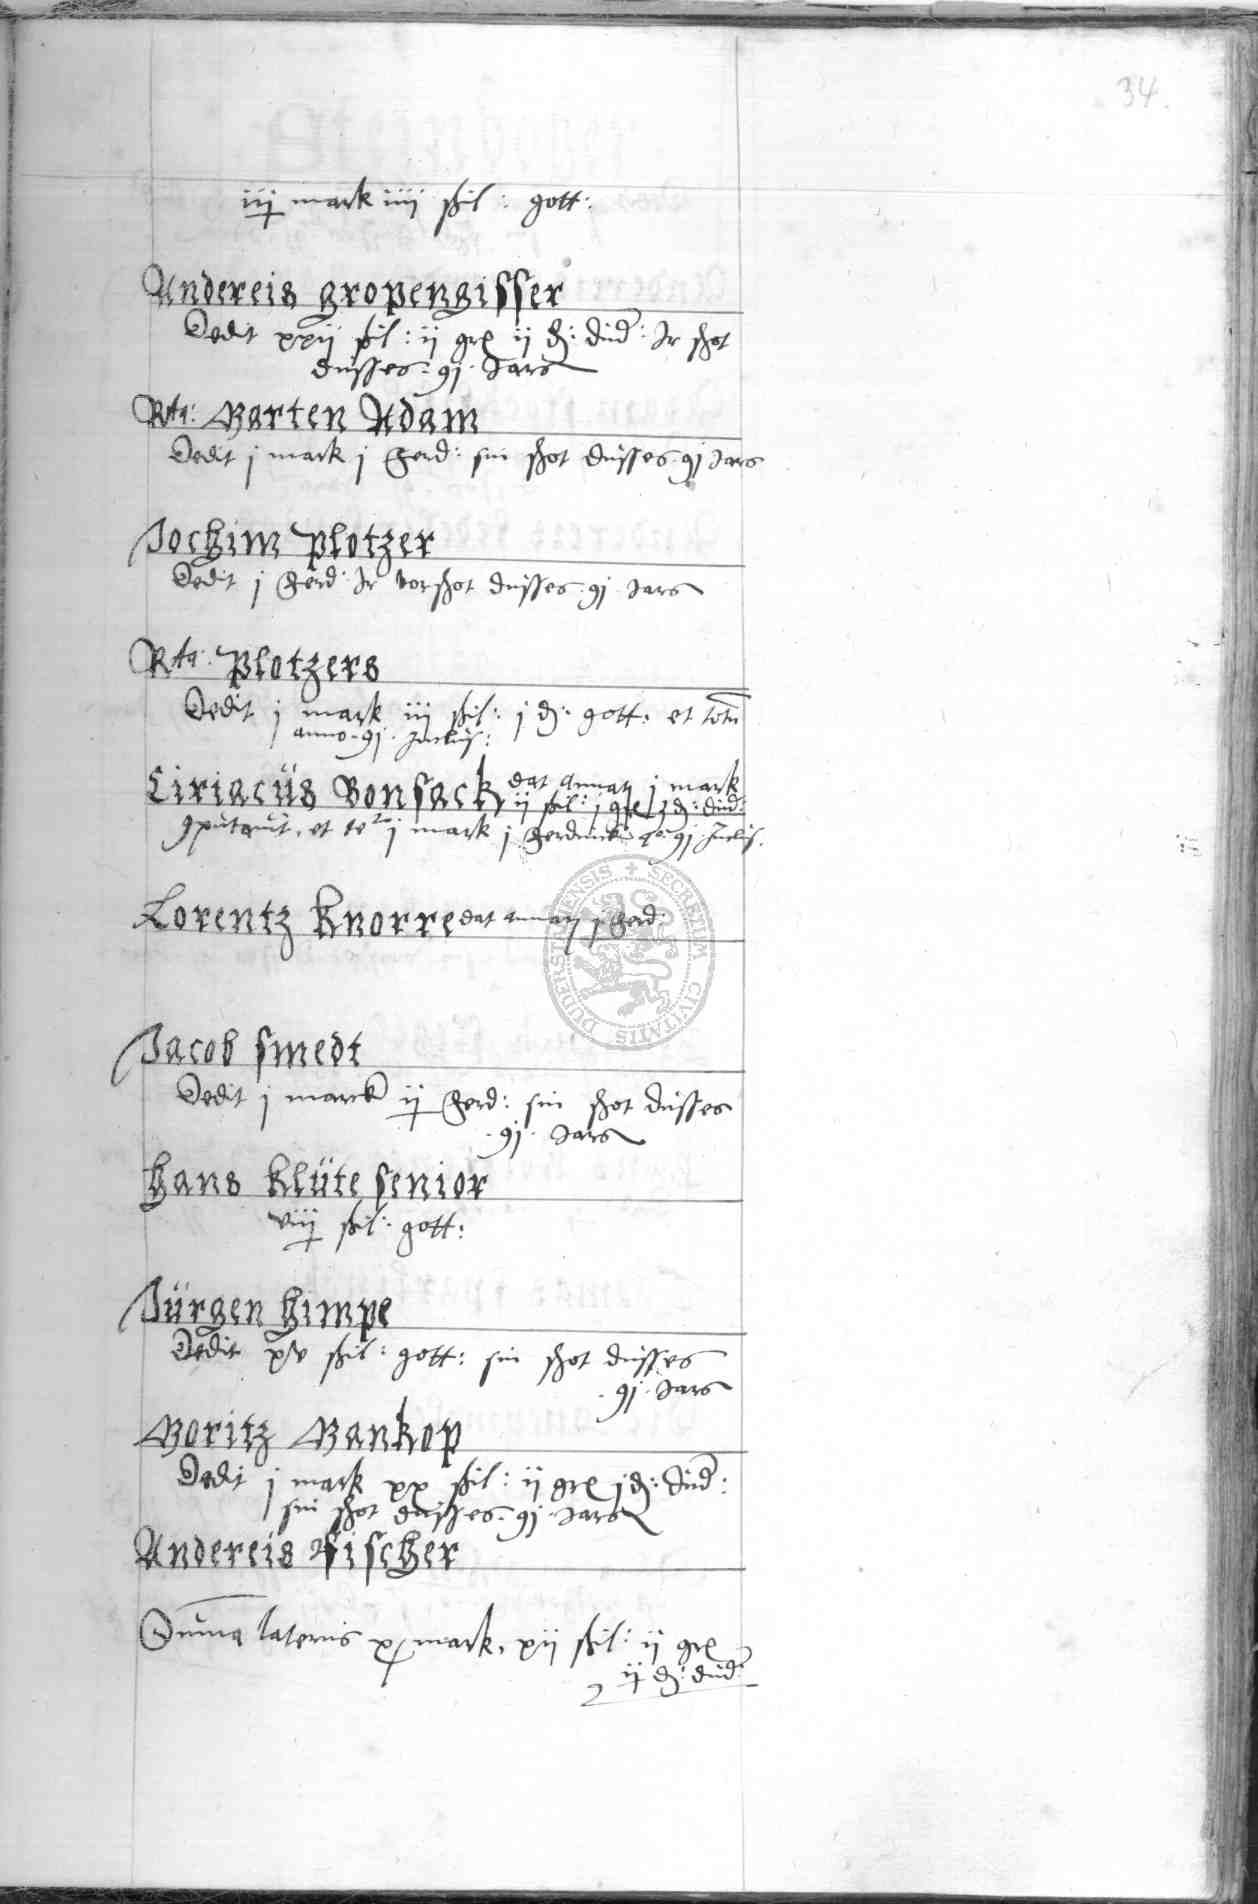 34.
iij mark iiij shil: gott:
Andereis gropengisser
Dedit xxij shil: ij gr ij d: dud: Ir shot
dusses 91 Jars
Rta: Marten Adam
Dedit j mark j ferd: sin shot dusses 91 Jars
Jochim Plotzer
Dedit j ferd: Ir vorshot dusses 91 Jars
Rta: Plotzers
Dedit j mark iij shil: j d: gott: et totum
anno 91
Ciriacüs Bonsack dat j mark
ij shil: j gr d: dud:
et j mark j ferdinck 91
Lorentz Knorre dat j ferd:
Jacob smedt
Dedit j marck ij ferd: sin shot dusses
91 Jars
Hans Klüte senior
viij shil: gott:
Jürgen himpe
Dedit xv shil: gott: sin shot dusses
91 Jars
Moritz Mankop
Dedit j mark xx shil: ij gr j d: dud:
sin shot dusses 91 Jars
Andereis Fischer
Suma lateris x mark, xij shil: ij gr
ij d: dud:
SECRETUM CIVITATIS DUDERSTADIENSIS